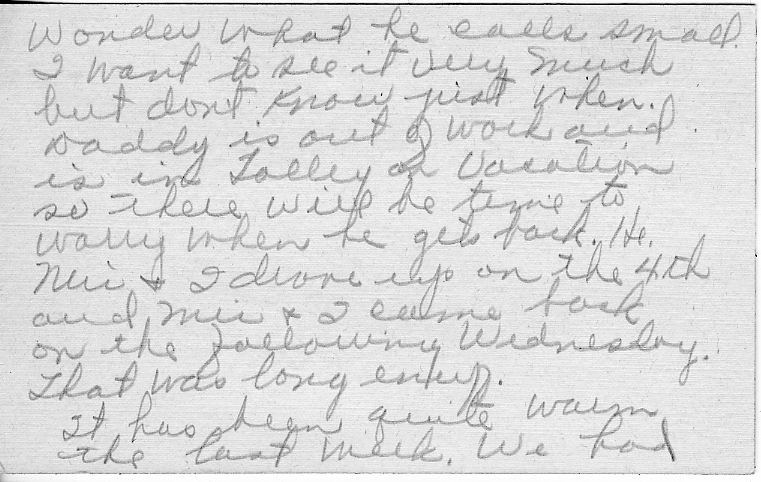 Wonder what he calls small.
I want to see it very much
but dont know just when.
Daddy is out of work and
is in Tolley on Vacation
so there will be time to
worry when he gets back. He,
Mii & I drove up on the 4th
and Mii & I came back
on the following Wednesday.
That was long enuf.
It has been quite warm
the last week. We had